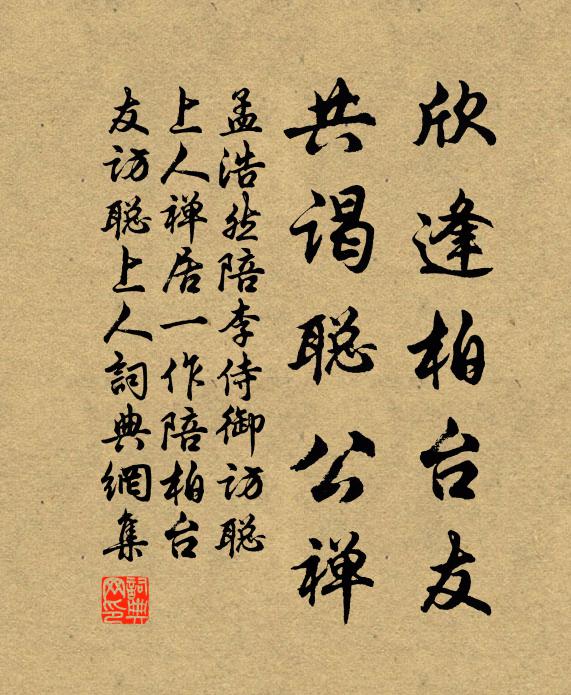 欣逢柏台友
共谒聪公禅
孟浩然陪李侍御访聪
上人禅居一作陪柏台
友访聪上人詞典網集
詞典
网印